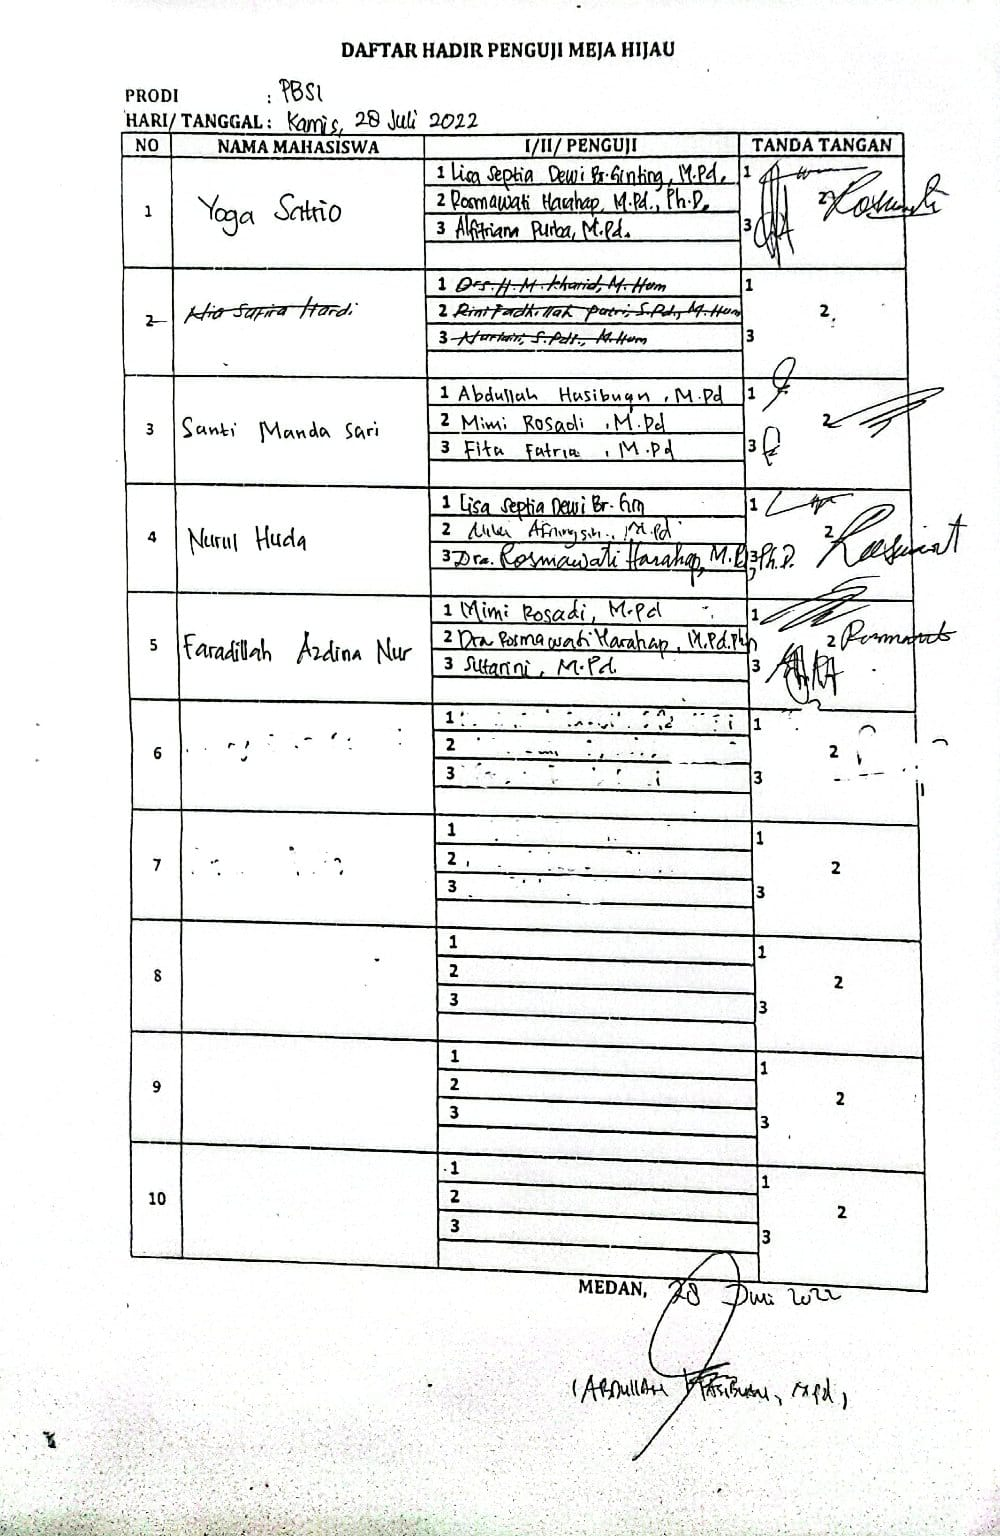 DAFTAR HADIR PENGUJI MEJA HIJAU
PRODI : PBSI
HARI/ TANGGAL : Kamis, 28 Juli 2022
NO NAMA MAHASISWA I/II/ PENGUJI TANDA TANGAN
1 Yoga Satrio
1 Lisa Septia Dewi Br. Ginting, M.Pd. 1
2 Rosmawati Harahap, M.Pd., Ph.D. 2
3 Alfitriani Purba, M.Pd. 3
2 Nia Safira Hardi
1 Drs. H. M. Kharid, M. Hum 1
2 Rini Fadhillah Putri, S.Pd, M.Hum 2
3 S.Pdi., M.Hum 3
3 Santi Manda Sari
1 Abdullah Hasibuan, M.Pd 1
2 Mimi Rosadi, M.Pd 2
3 Fita Fatria, M.Pd 3
4 Nurul Huda
1 Lisa Septia Dewi Br. Gin 1
2 M.Pd 2
3 Dra. Rosmawati Harahap, M.Pd, Ph.D. 3
5 Faradillah Azdina Nur
1 Mimi Rosadi, M.Pd 1
2 Dra Rosmawati Harahap, M.Pd. PhD 2
3 Sutarini, M.Pd. 3
6
1 1
2 2
3 3
7
1 1
2 2
3 3
8
1 1
2 2
3 3
9
1 1
2 2
3 3
10
1 1
2 2
3 3
MEDAN, 28 Juli 2022
(ABDULLAH HASIBUAN, M.Pd)